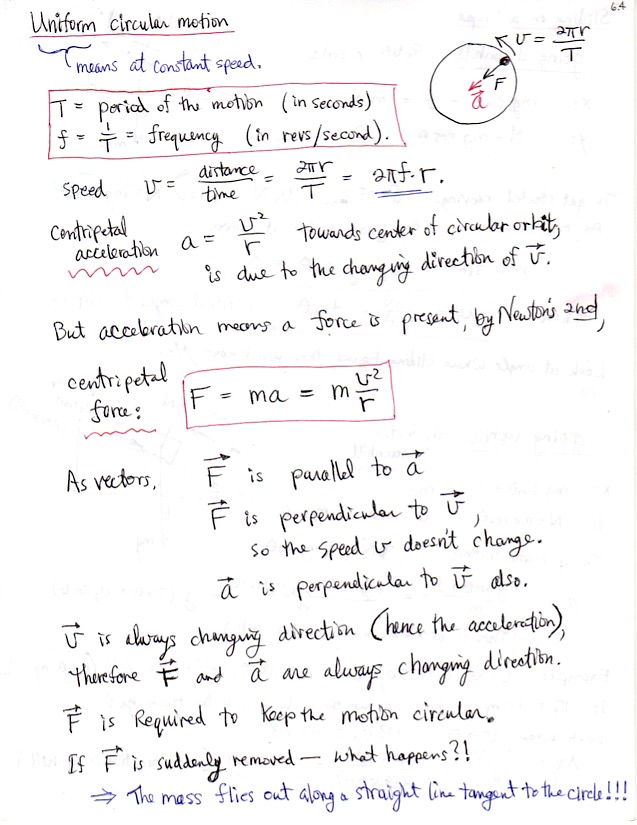 6.4
Uniform circular motion
means at constant speed.
v = 2πr/T
F
a⃗
T = period of the motion (in seconds)
f = 1/T = frequency (in revs/second).
speed v = distance/time = 2πr/T = 2πf·r.
Centripetal acceleration a = v²/r towards center of circular orbit,
is due to the changing direction of v⃗.
But acceleration means a force is present, by Newton's 2nd,
centripetal force: F = ma = m v²/r
As vectors, F⃗ is parallel to a⃗
F⃗ is perpendicular to v⃗,
so the speed v doesn't change.
a⃗ is perpendicular to v⃗ also.
v⃗ is always changing direction (hence the acceleration),
therefore F⃗ and a⃗ are always changing direction.
F⃗ is Required to keep the motion circular.
If F⃗ is suddenly removed — what happens?!
⇒ The mass flies out along a straight line tangent to the circle!!!